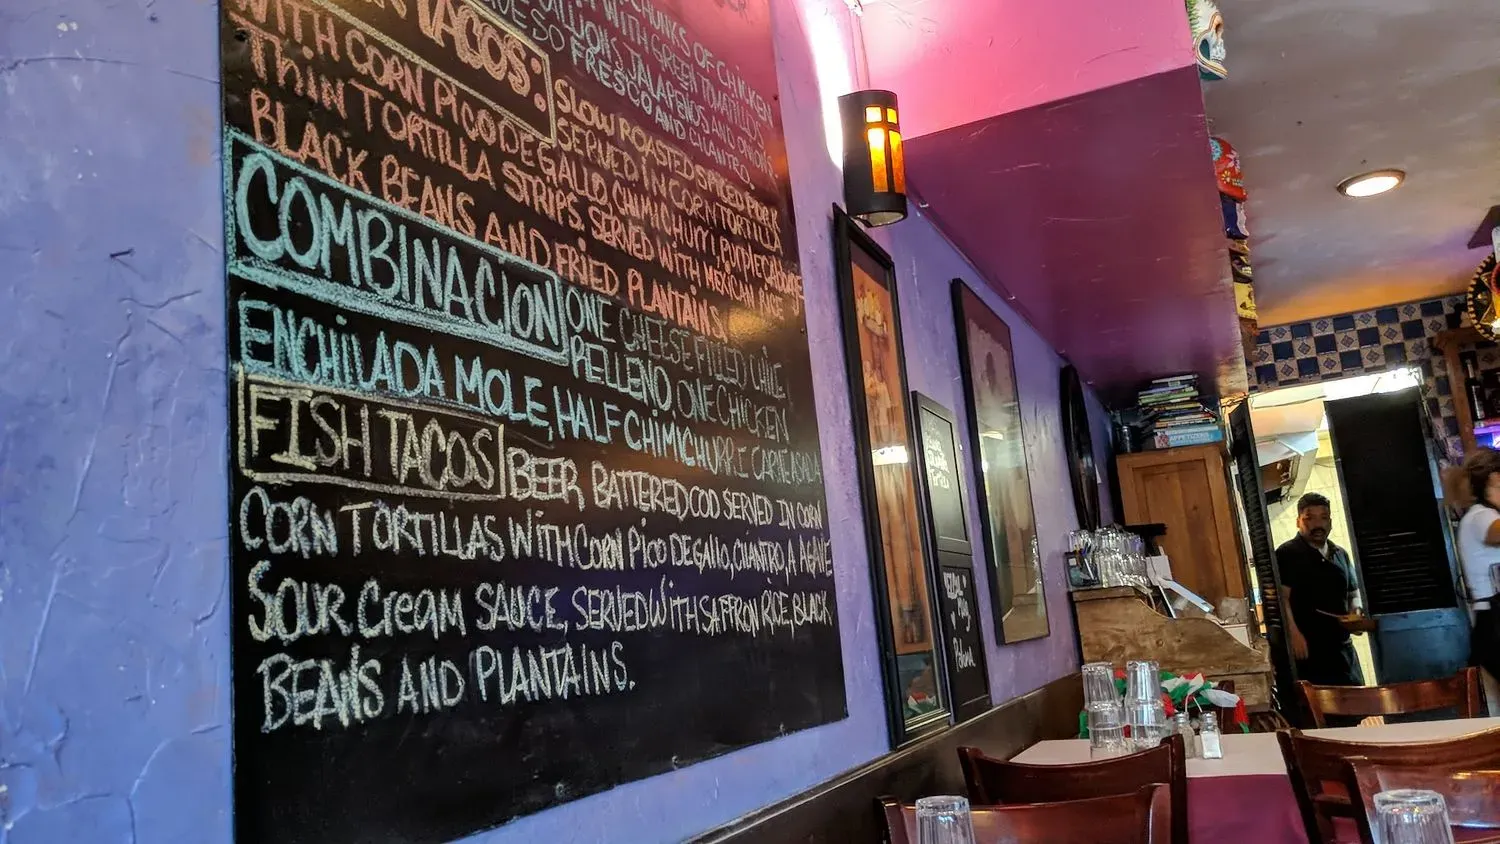 CHUNKS OF CHICKEN
WITH GREEN TOMATILLOS
JALAPENOS AND ONIONS
SO FRESCO AND CILANTRO.
TACOS: SLOW ROASTED SPICED PORK
SERVED IN CORN TORTILLA
WITH CORN PICO DE GALLO, CHIMICHURRI, PURPLE CABBAGE
THIN TORTILLA STRIPS. SERVED WITH MEXICAN RICE
BLACK BEANS AND FRIED PLANTAINS.
COMBINACION ONE CHEESE FILLED CHILE
RELLENO, ONE CHICKEN
ENCHILADA MOLE, HALF CHIMICHURRI CARNE ASADA
FISH TACOS BEER BATTERED COD SERVED IN CORN
CORN TORTILLAS WITH CORN PICO DE GALLO, CILANTRO, A AGAVE
SOUR CREAM SAUCE, SERVED WITH SAFFRON RICE, BLACK
BEANS AND PLANTAINS.